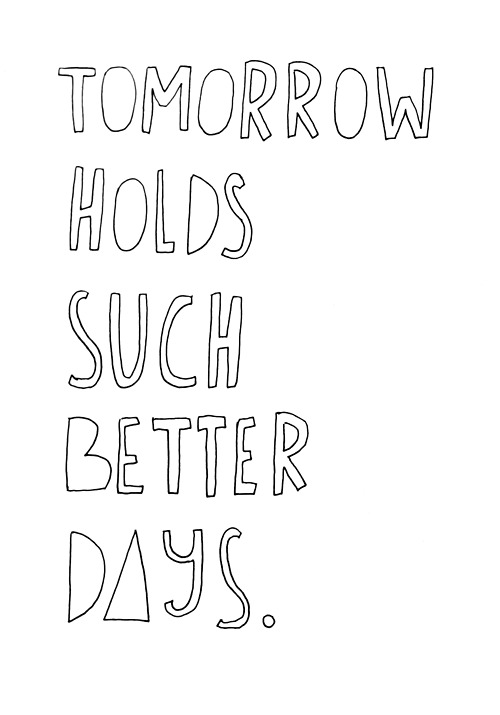 TOMORROW
HOLDS
SUCH
BETTER
DAYS.